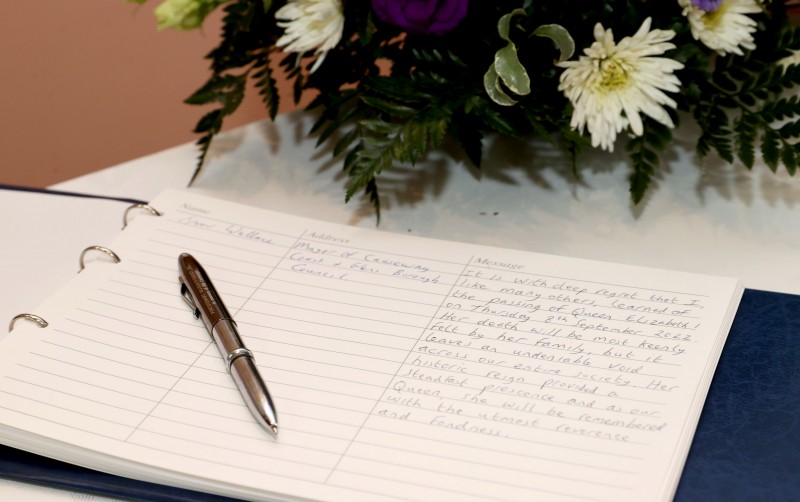 Name
Address
Message
Wallace
Mayor of Causeway
Coast & Glens Borough
Council
It is with deep regret that I,
like many others, learned of
the passing of Queen Elizabeth II
on Thursday 8th September 2022.
Her death will be most keenly
felt by her family, but it
leaves an undeniable void
across our entire society. Her
historic reign provided a
steadfast prescence and as our
Queen, she will be remembered
with the utmost reverence
and fondness.